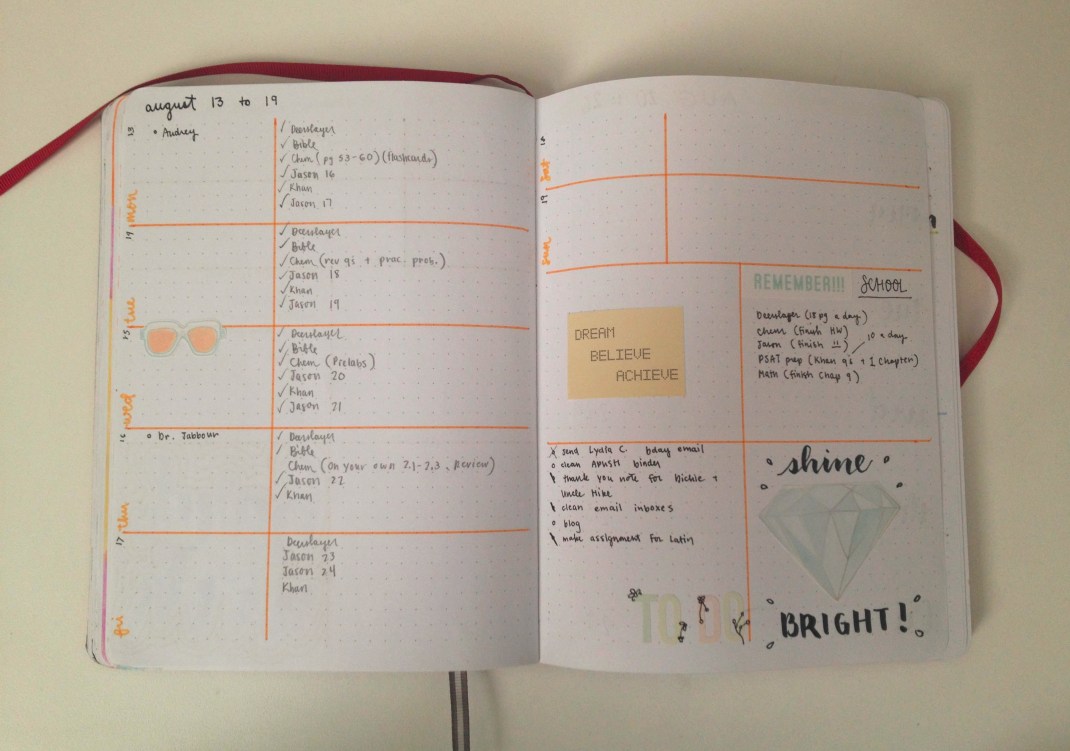 august 13 to 19
13
mon
• Audrey
✓ Deerslayer
✓ Bible
✓ Chem (pg 53-60) (flashcards)
✓ Jason 16
✓ Khan
✓ Jason 17
14
tue
✓ Deerslayer
✓ Bible
✓ Chem (rev qi + prac. prob.)
✓ Jason 18
✓ Khan
✓ Jason 19
15
wed
✓ Deerslayer
✓ Bible
✓ Chem (Prelabs)
✓ Jason 20
✓ Khan
✓ Jason 21
16
thu
• Dr. Jabbour
✓ Deerslayer
✓ Bible
Chem (on your own 2.1-2.3, Review)
✓ Jason 22
✓ Khan
17
fri
Deerslayer
Jason 23
Jason 24
Khan
18
sat
19
sun
DREAM
BELIEVE
ACHIEVE
REMEMBER!!! SCHOOL
Deerslayer (18 pg a day)
Chem (finish HW)
Jason (finish !!) 10 a day
PSAT prep (Khan qi + 1 Chapter)
Math (finish Chap 9)
send Lydia C. bday email
clean APUSH binder
thank you note for Dickie +
Uncle Mike
clean email inboxes
blog
make assignment for Latin
TO DO
shine
BRIGHT!